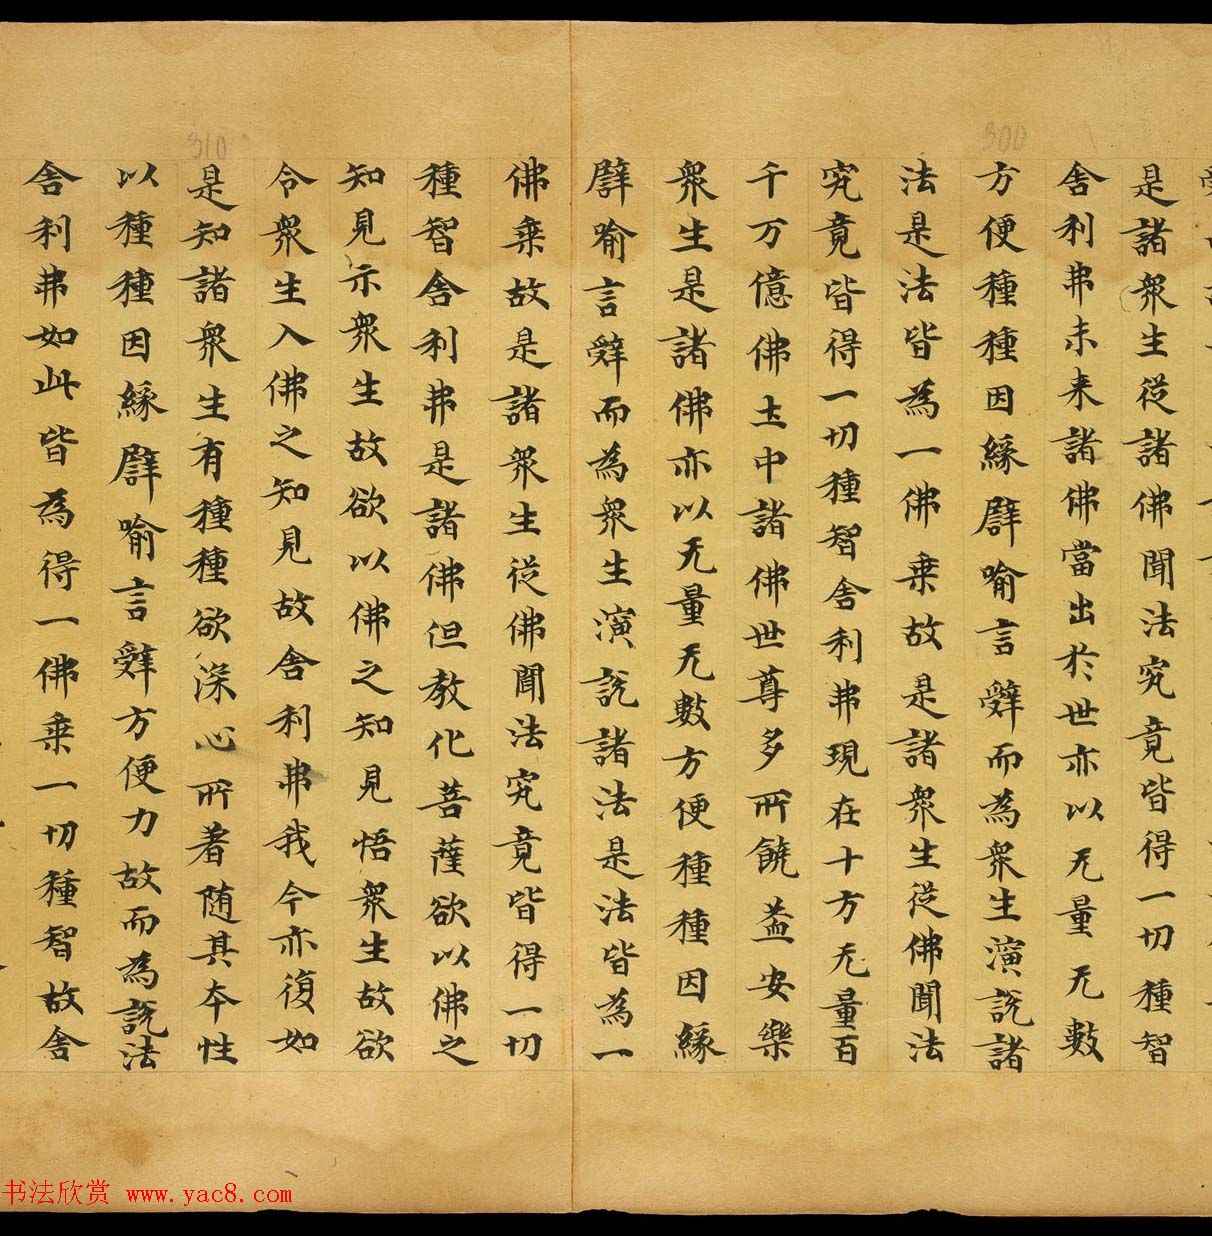 是諸衆生従諸佛聞法究竟皆得一切種智
舍利弗未来諸佛當出於世亦以无量无數
方便種種因緣譬喻言辤而為衆生演說諸
法是法皆為一佛乗故是諸衆生従佛聞法
究竟皆得一切種智舍利弗現在十方无量百
千万億佛土中諸佛世尊多所饒益安樂
衆生是諸佛亦以无量无數方便種種因緣
譬喻言辤而為衆生演說諸法是法皆為一
佛乗故是諸衆生従佛聞法究竟皆得一切
種智舍利弗是諸佛但教化菩薩欲以佛之
知見示衆生故欲以佛之知見悟衆生故欲
令衆生入佛之知見故舍利弗我今亦復如
是知諸衆生有種種欲深心所著随其本性
以種種因緣譬喻言辤方便力故而為說法
舍利弗如此皆為得一佛乗一切種智故舍
300
310
书法欣赏 www.yac8.com